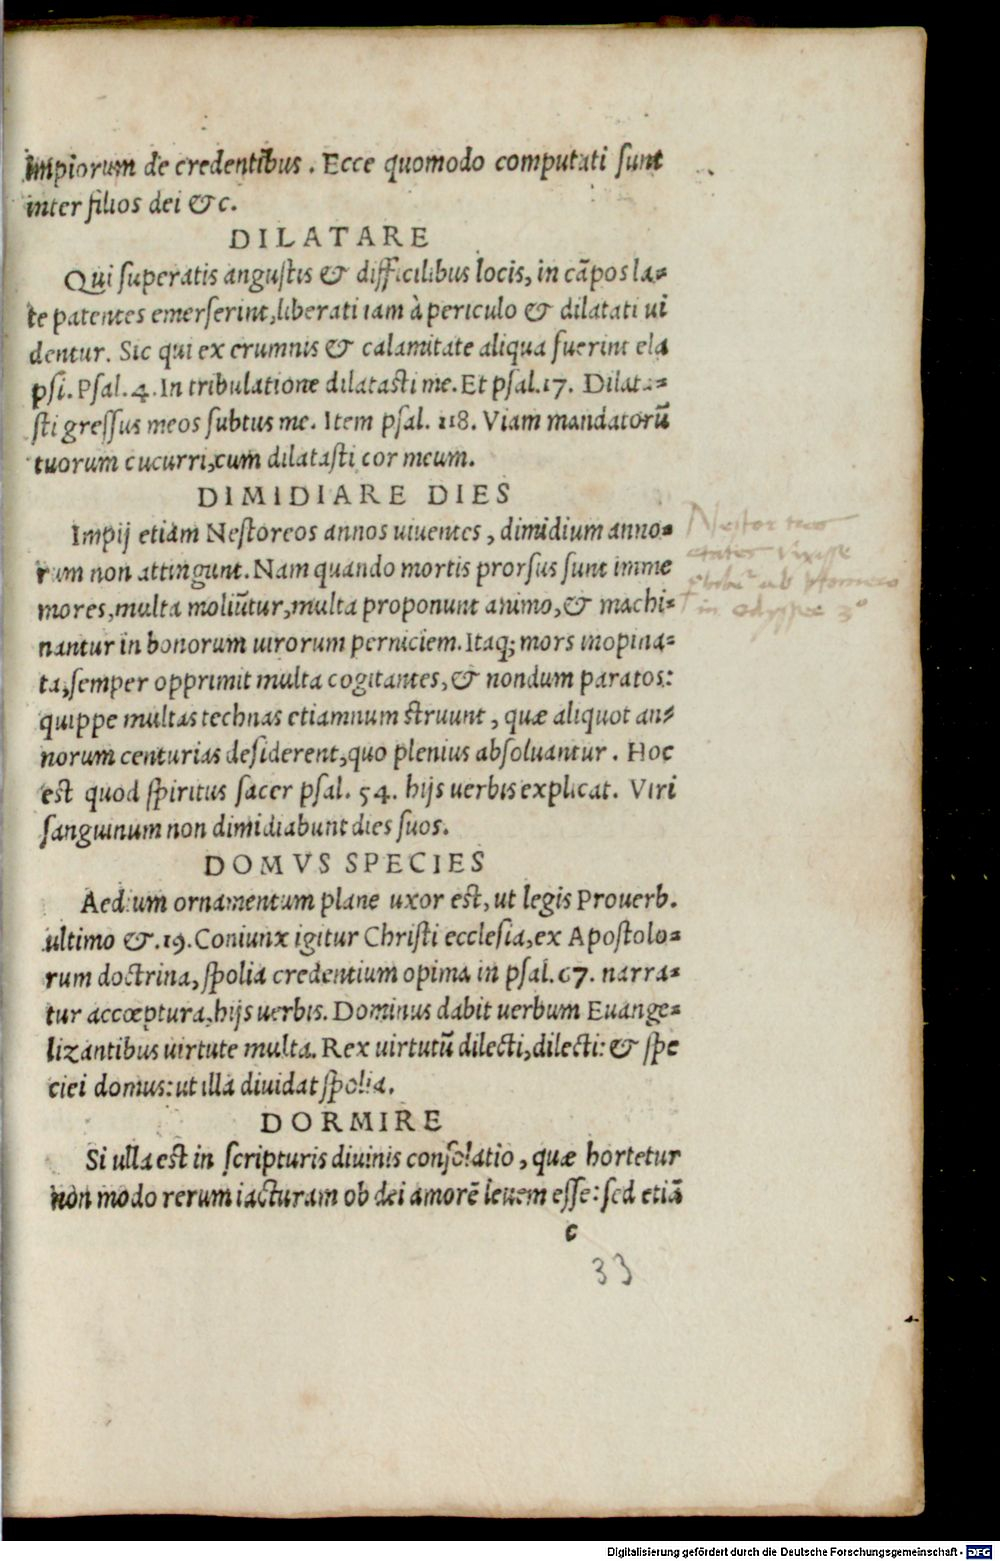 impiorum de credentibus. Ecce quomodo computati sunt
inter filios dei &c.
DILATARE
Qui superatis angustis & difficilibus locis, in cāpos la-
te patentes emerserint, liberati iam à periculo & dilatati ui
dentur. Sic qui ex erumnis & calamitate aliqua fuerint ela
psi. Psal. 4. In tribulatione dilatasti me. Et psal. 17. Dilata-
sti gressus meos subtus me. Item psal. 118. Viam mandatorū
tuorum cucurri, cum dilatasti cor meum.
DIMIDIARE DIES
Impij etiam Nestoreos annos uiuentes, dimidium anno-
rum non attingunt. Nam quando mortis prorsus sunt imme
mores, multa moliūtur, multa proponunt animo, & machi-
nantur in bonorum uirorum perniciem. Itaq; mors inopina-
ta, semper opprimit multa cogitantes, & nondum paratos:
quippe multas technas etiamnum struunt, quæ aliquot an-
norum centurias desiderent, quo plenius absoluantur. Hoc
est quod spiritus sacer psal. 54. hijs uerbis explicat. Viri
sanguinum non dimidiabunt dies suos.
Nestor tres
etates vixisse
ab Homero
in odyssee 3°
DOMVS SPECIES
Aedium ornamentum plane uxor est, ut legis Prouerb.
ultimo &. 19. Coniunx igitur Christi ecclesia, ex Apostolo-
rum doctrina, spolia credentium opima in psal. 67. narra-
tur accœptura, hijs uerbis. Dominus dabit uerbum Euange-
lizantibus uirtute multa. Rex uirtutū dilecti, dilecti: & spe
ciei domus: ut illa diuidat spolia.
DORMIRE
Si ulla est in scripturis diuinis consolatio, quæ hortetur
non modo rerum iacturam ob dei amorē leuem esse: sed etiā
c
33
Digitalisierung gefördert durch die Deutsche Forschungsgemeinschaft - DFG